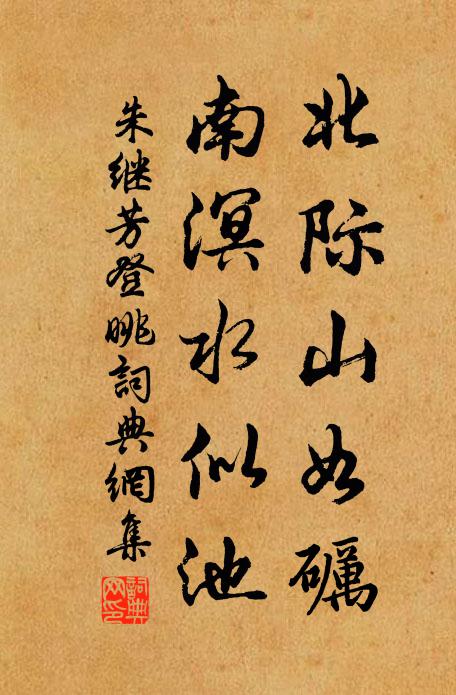 北际山如礪
南溟水似池
朱继芳登眺詞典網集
詞典網印